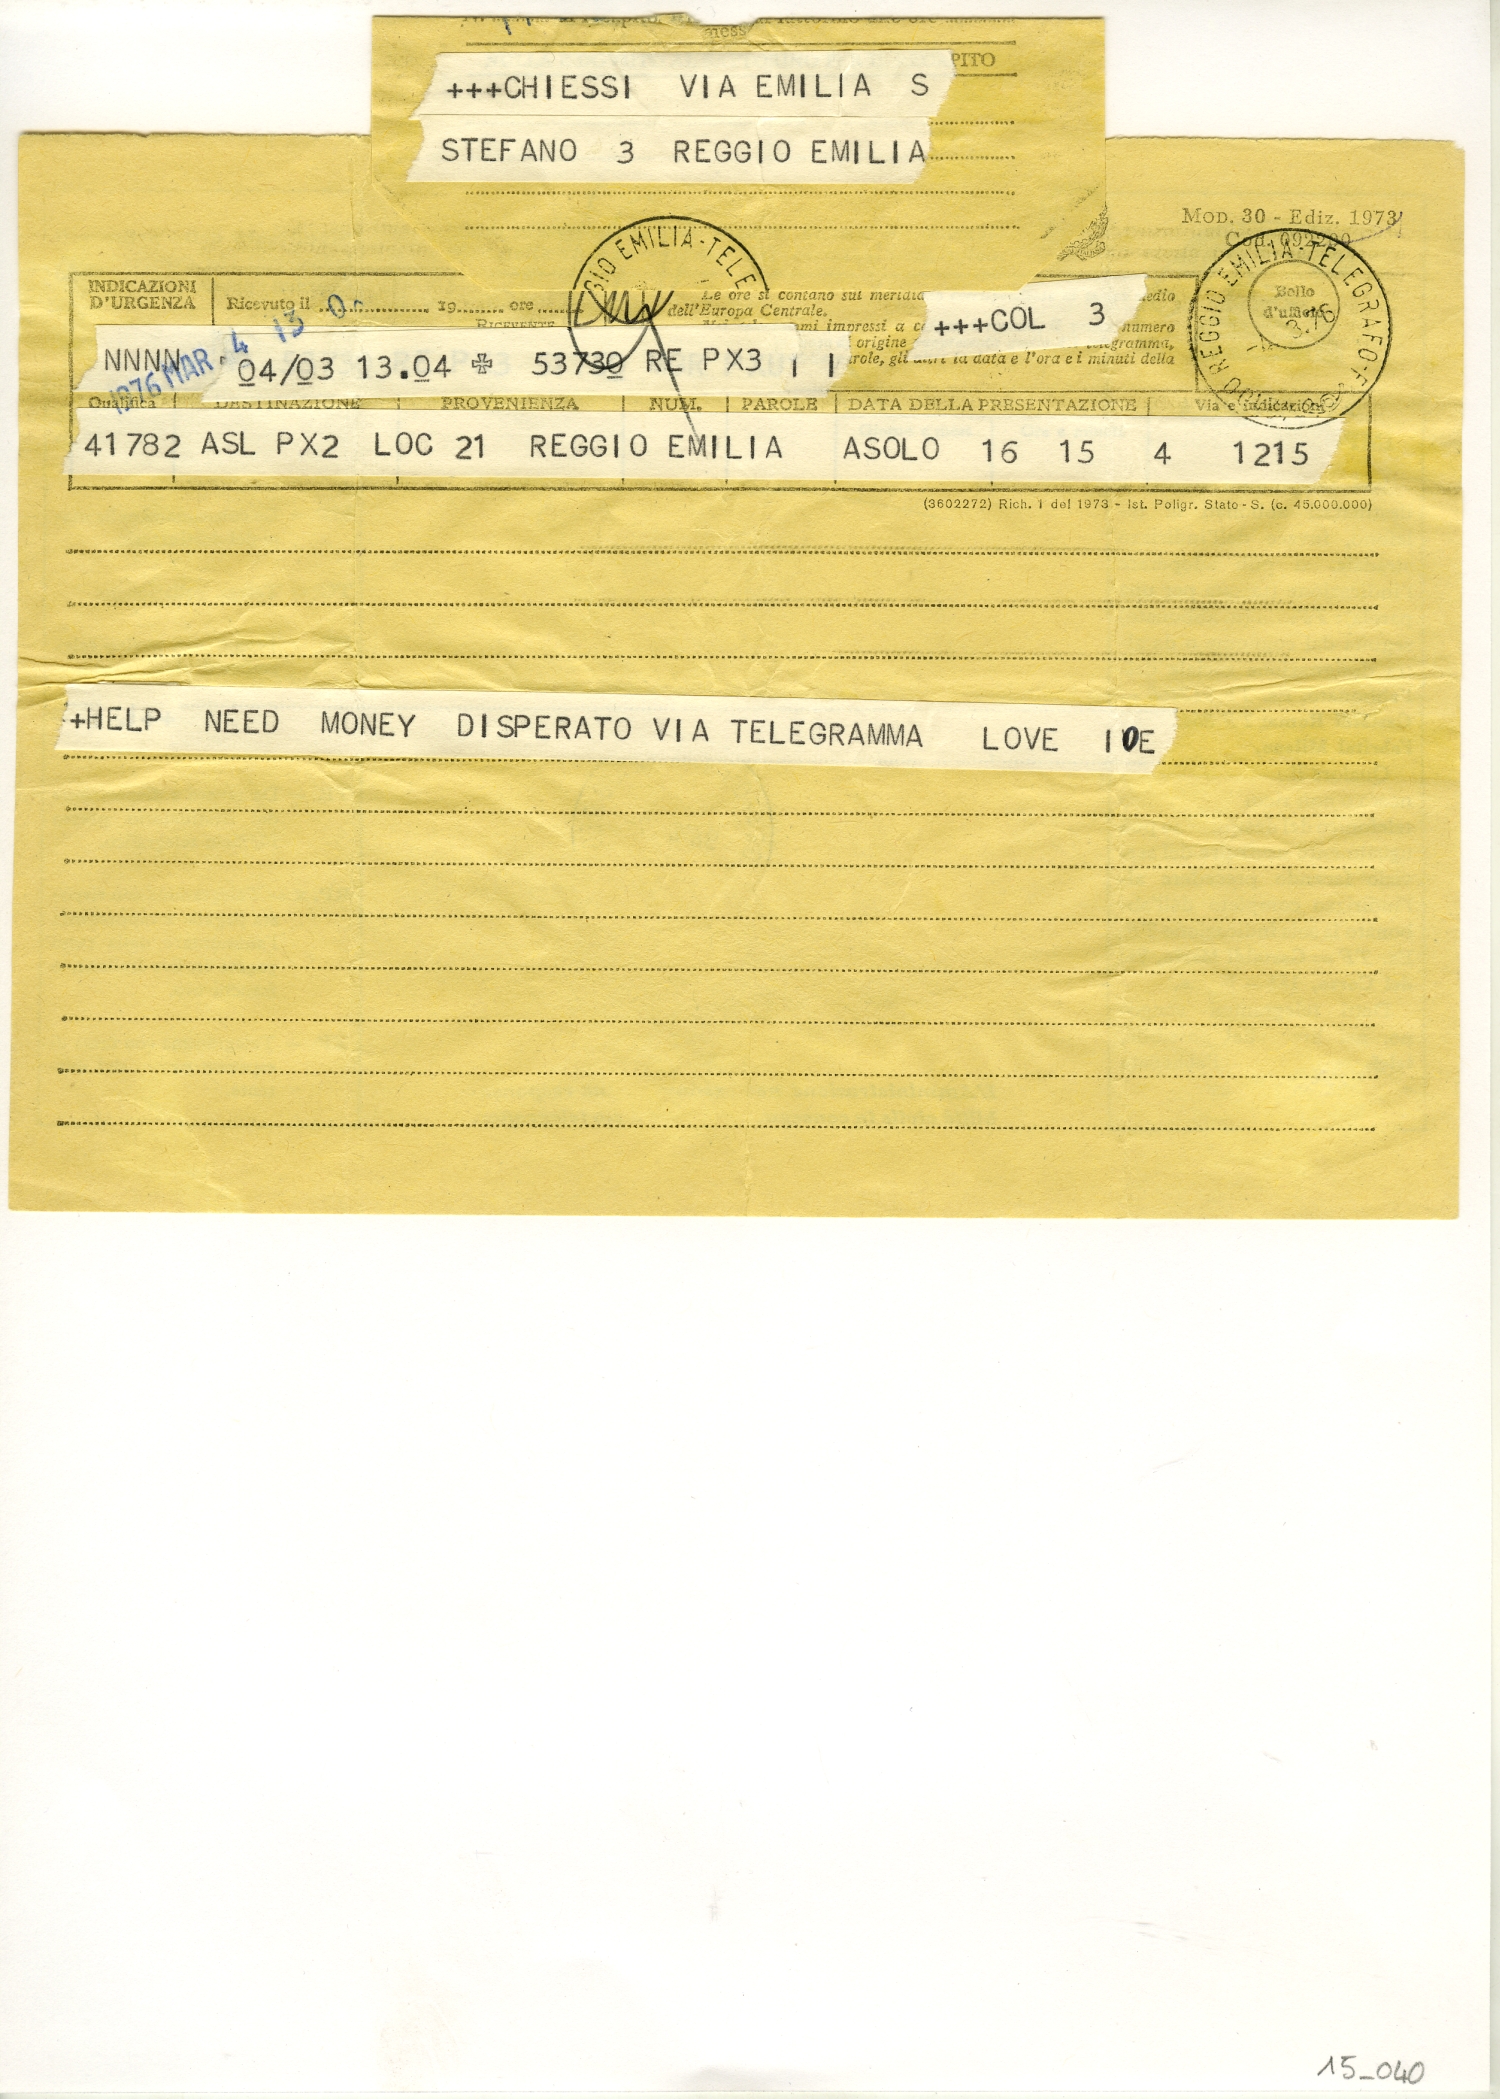 PITO
+++CHIESSI VIA EMILIA S
STEFANO 3 REGGIO EMILIA
MOD. 30 - Ediz. 1973
Cod. 092200
REGGIO EMILIA-TELEGRAFO
Bollo
d'ufficio
3.76
GIO EMILIA-TELE
INDICAZIONI
D'URGENZA
Ricevuto il 19 ore
RICEVENTE
Le ore si contano sul meridia edio
dell'Europa Centrale.
impressi a numero
origine gramma,
gli la data e l'ora e i minuti della
+++COL 3
1976 MAR. 4 13
NNNN 04/03 13.04 + 53730 RE PX3
Qualifica DESTINAZIONE PROVENIENZA NUM. PAROLE DATA DELLA PRESENTAZIONE Via e indicazioni
41782 ASL PX2 LOC 21 REGGIO EMILIA ASOLO 16 15 4 1215
(3602272) Rich. 1 del 1973 - Ist. Poligr. Stato - S. (c. 45.000.000)
+HELP NEED MONEY DISPERATO VIA TELEGRAMMA LOVE
15_040